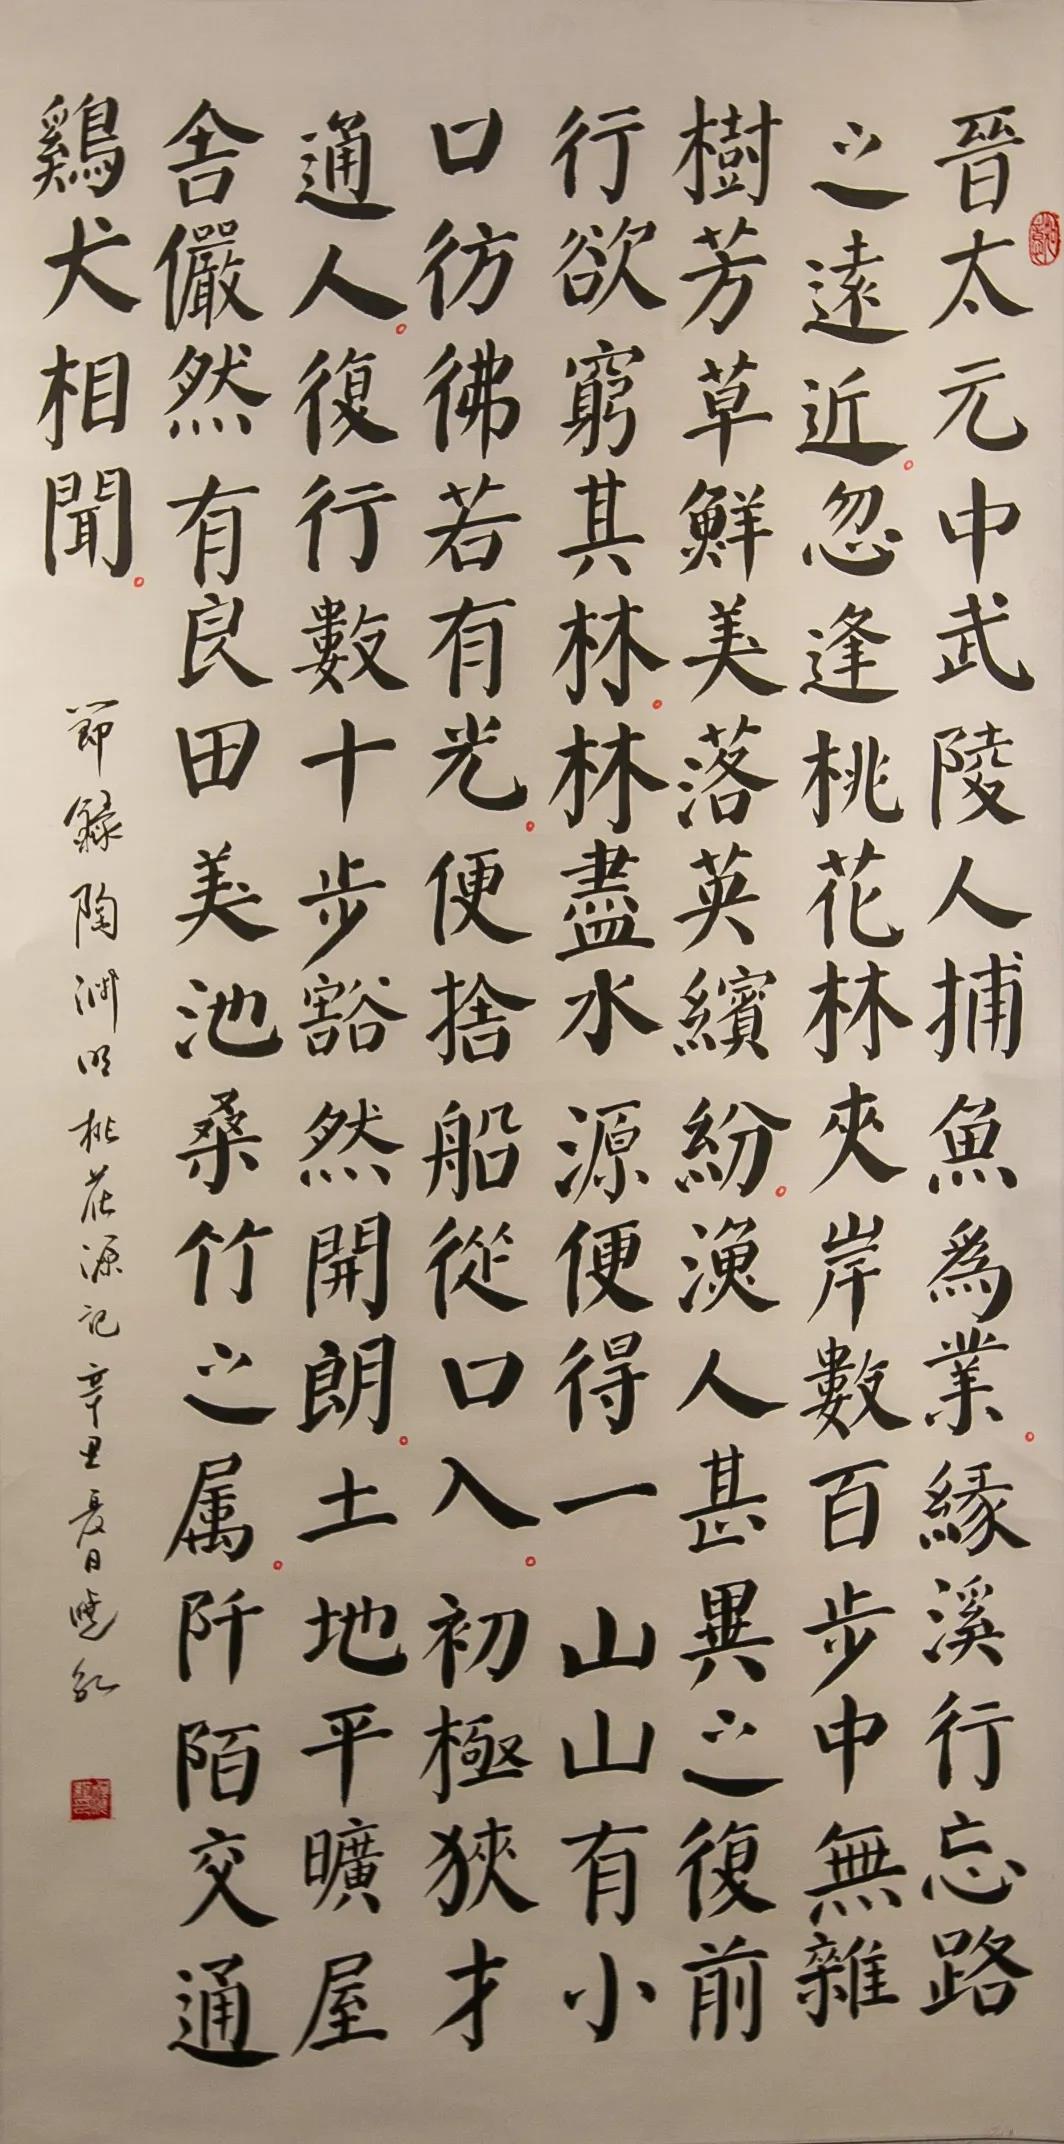 晉太元中武陵人捕魚為業。緣溪行忘路
之遠近。忽逢桃花林夾岸數百步中無雜
樹芳草鮮美落英繽紛。漁人甚異之復前
行欲窮其林。林盡水源便得一山山有小
口彷彿若有光。便捨船從口入。初極狹才
通人。復行數十步豁然開朗。土地平曠屋
舍儼然有良田美池桑竹之属。阡陌交通
鷄犬相聞。
節錄陶淵明桃花源記辛丑夏日曉